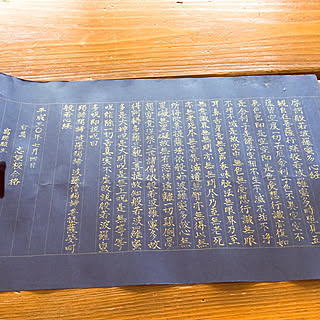 摩訶般若波羅蜜多心経
観自在菩薩行深般若波羅蜜多時照見五
蘊皆空度一切苦厄舎利子色不異空空不
異色色即是空空即是色受想行識亦復如
是舎利子是諸法空相不生不滅不垢不浄
不増不減是故空中無色無受想行識無眼
耳鼻舌身意無色声香味触法無眼界乃至
無意識界無無明亦無無明尽乃至無老死
亦無老死尽無苦集滅道無智亦無得以無
所得故菩提薩埵依般若波羅蜜多故心無
罣礙無罣礙故無有恐怖遠離一切顛倒夢
想究竟涅槃三世諸仏依般若波羅蜜多故
得阿耨多羅三藐三菩提故知般若波羅蜜
多是大神呪是大明呪是無上呪是無等等
呪能除一切苦真実不虚故説般若波羅蜜
多呪即説呪曰
羯諦羯諦波羅羯諦波羅僧羯諦菩提薩婆訶
般若心経
平成二〇年七月四日
志望校合格